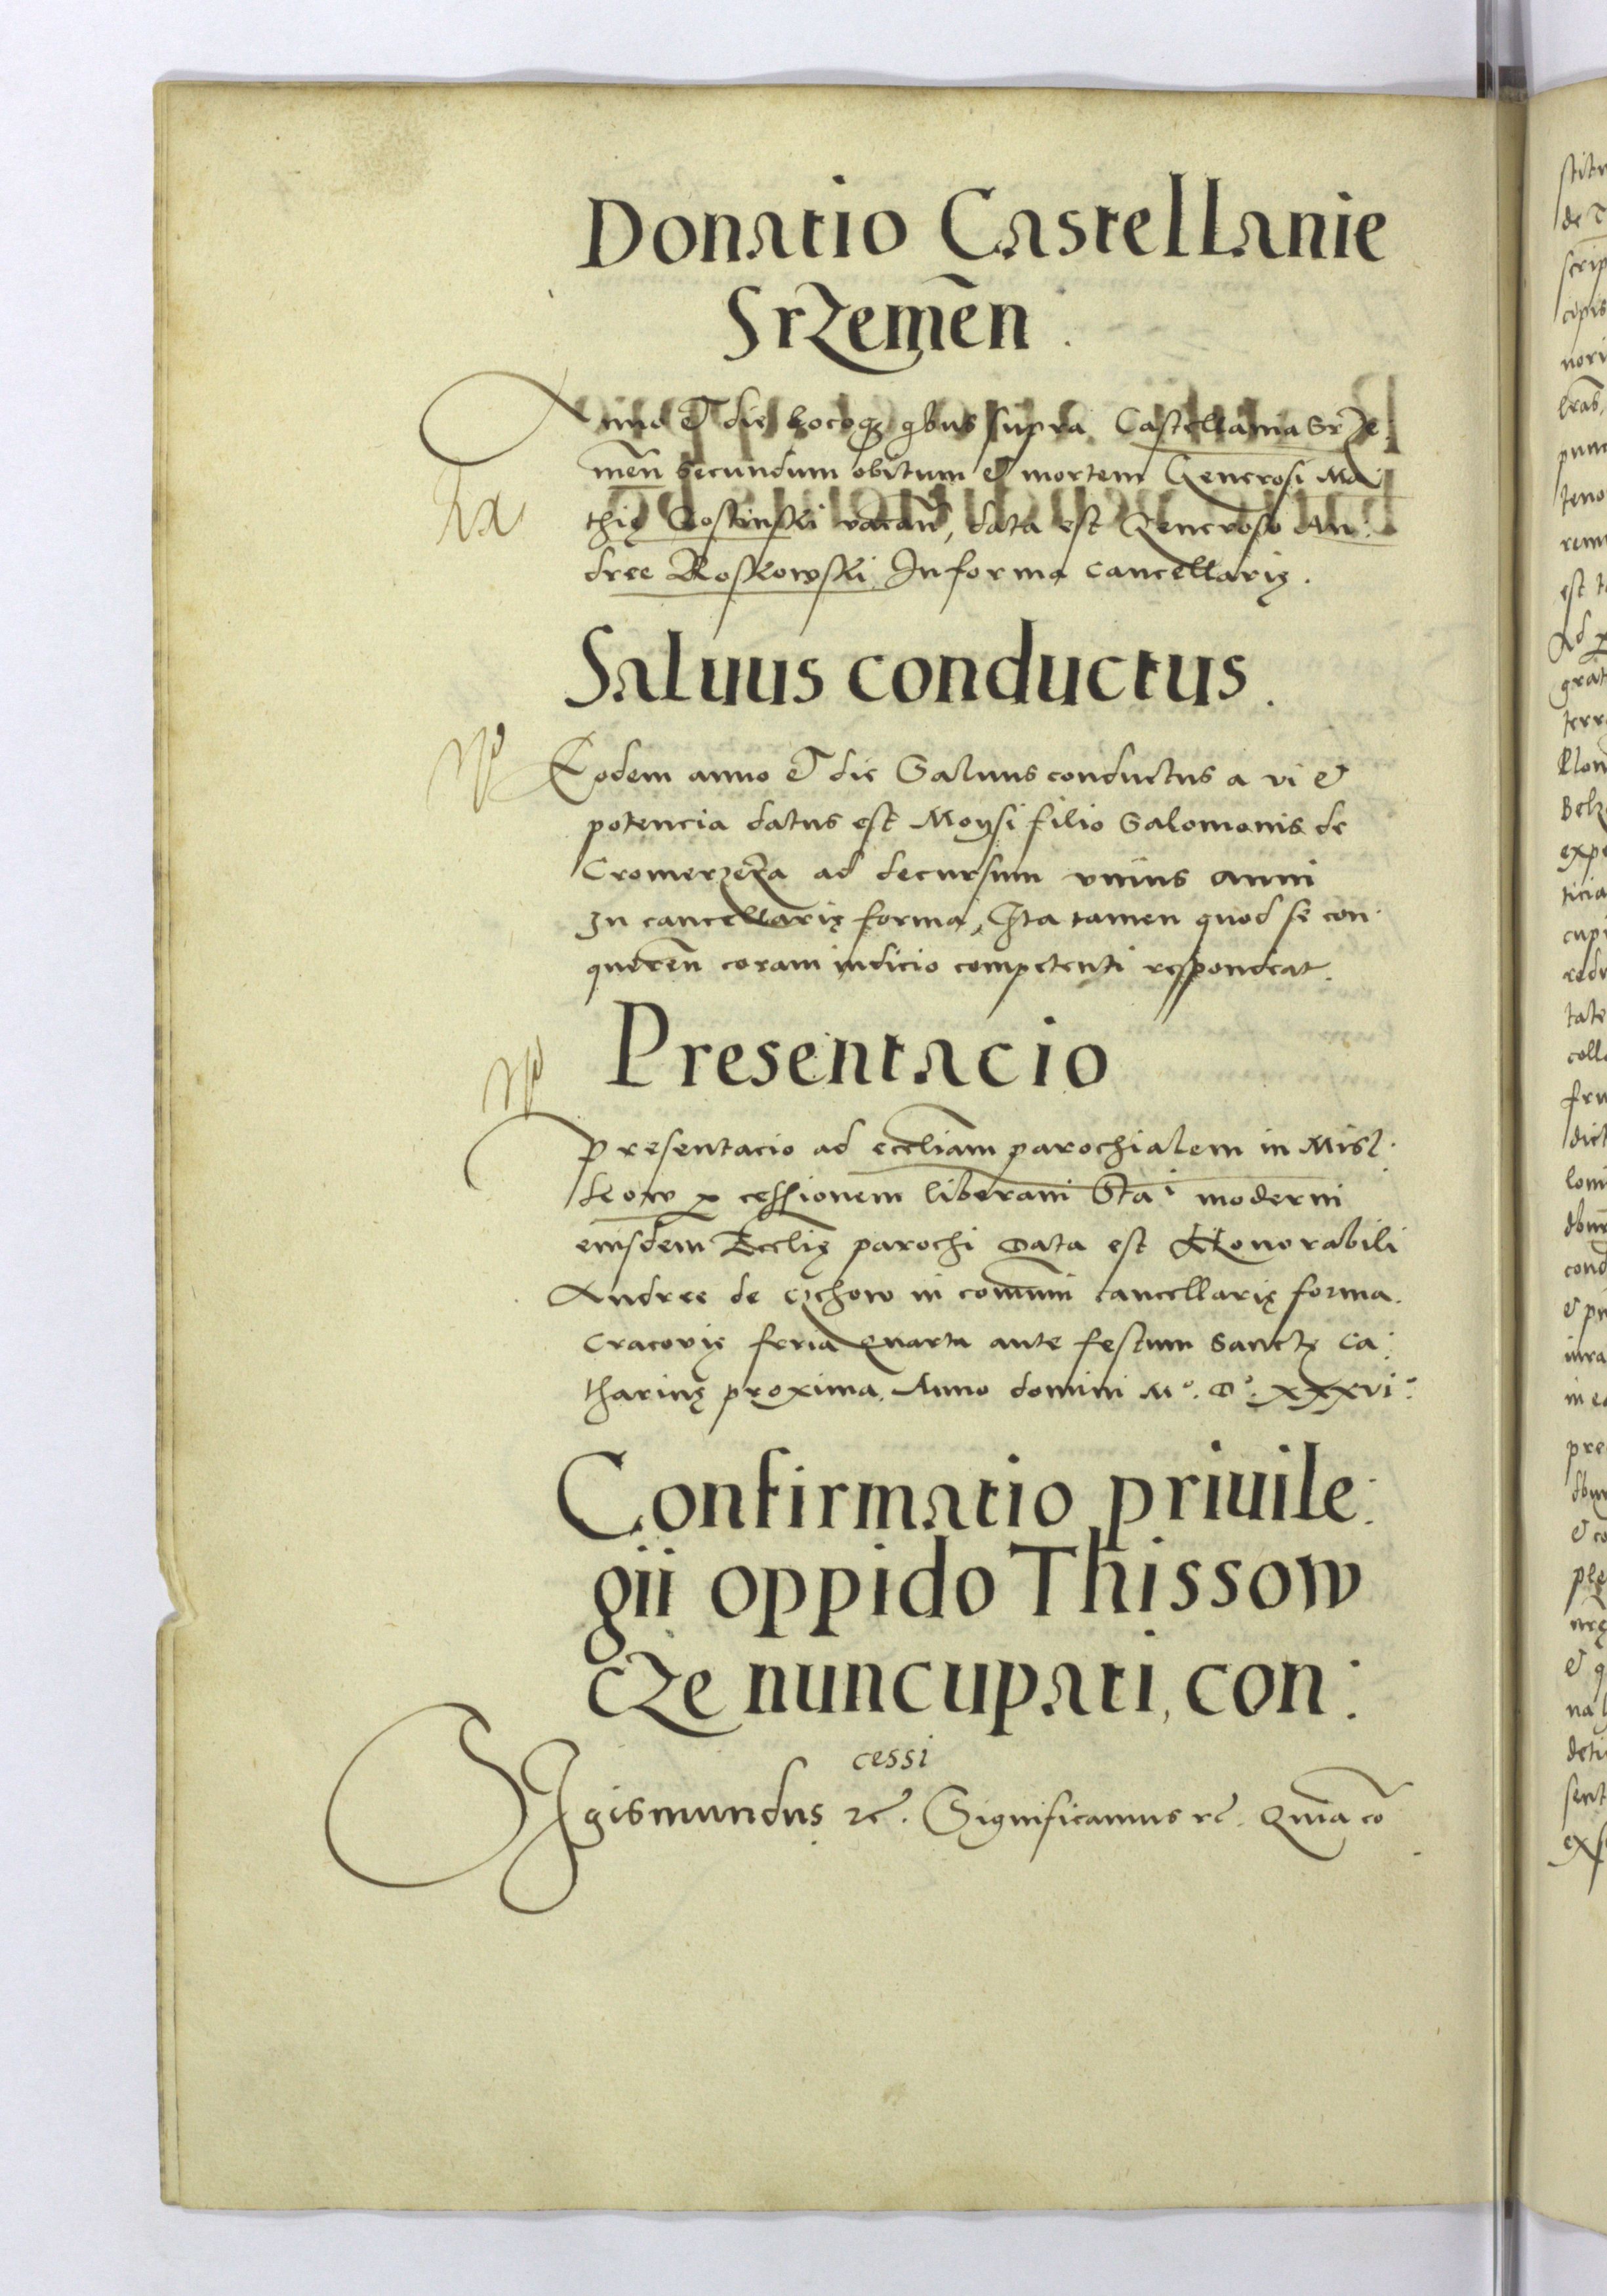 Donatio Castellanie
Srzemen̄.
Anno et die locoq̨ qbus supra Castellania Srze
men̄ secundum obitum et mortem Generosi Ma
thię Gostinski vacan̄, data est Generoso An:
dree Roskowski In forma cancellarię.
Saluus conductus.
Eodem anno et die Saluus conductus a vi et
potencia datus est Moysi filio Salomonis de
Cromerzerza ad decursum vnius anni
In cancellarię forma, Ita tamen quod se con
queren̄ coram iudicio competenti respondeat.
Presentacio
Presentacio ad eccliam parochialem in Misl
kow cessionem liberam Stai moderni
eiusdem Ecclię parochi Data est Honorabili
Andree de in communi cancellarię forma.
Cracovię feria quarta ante festum Sanctę Ca:
tharinę proxima. Anno domini Mº. Dº. xxxvi:
Confirmatio priuile:
gii oppido Thissow
cze nuncupati, con:
cessi
Sigismundus &c. Significamus &c. Quia co